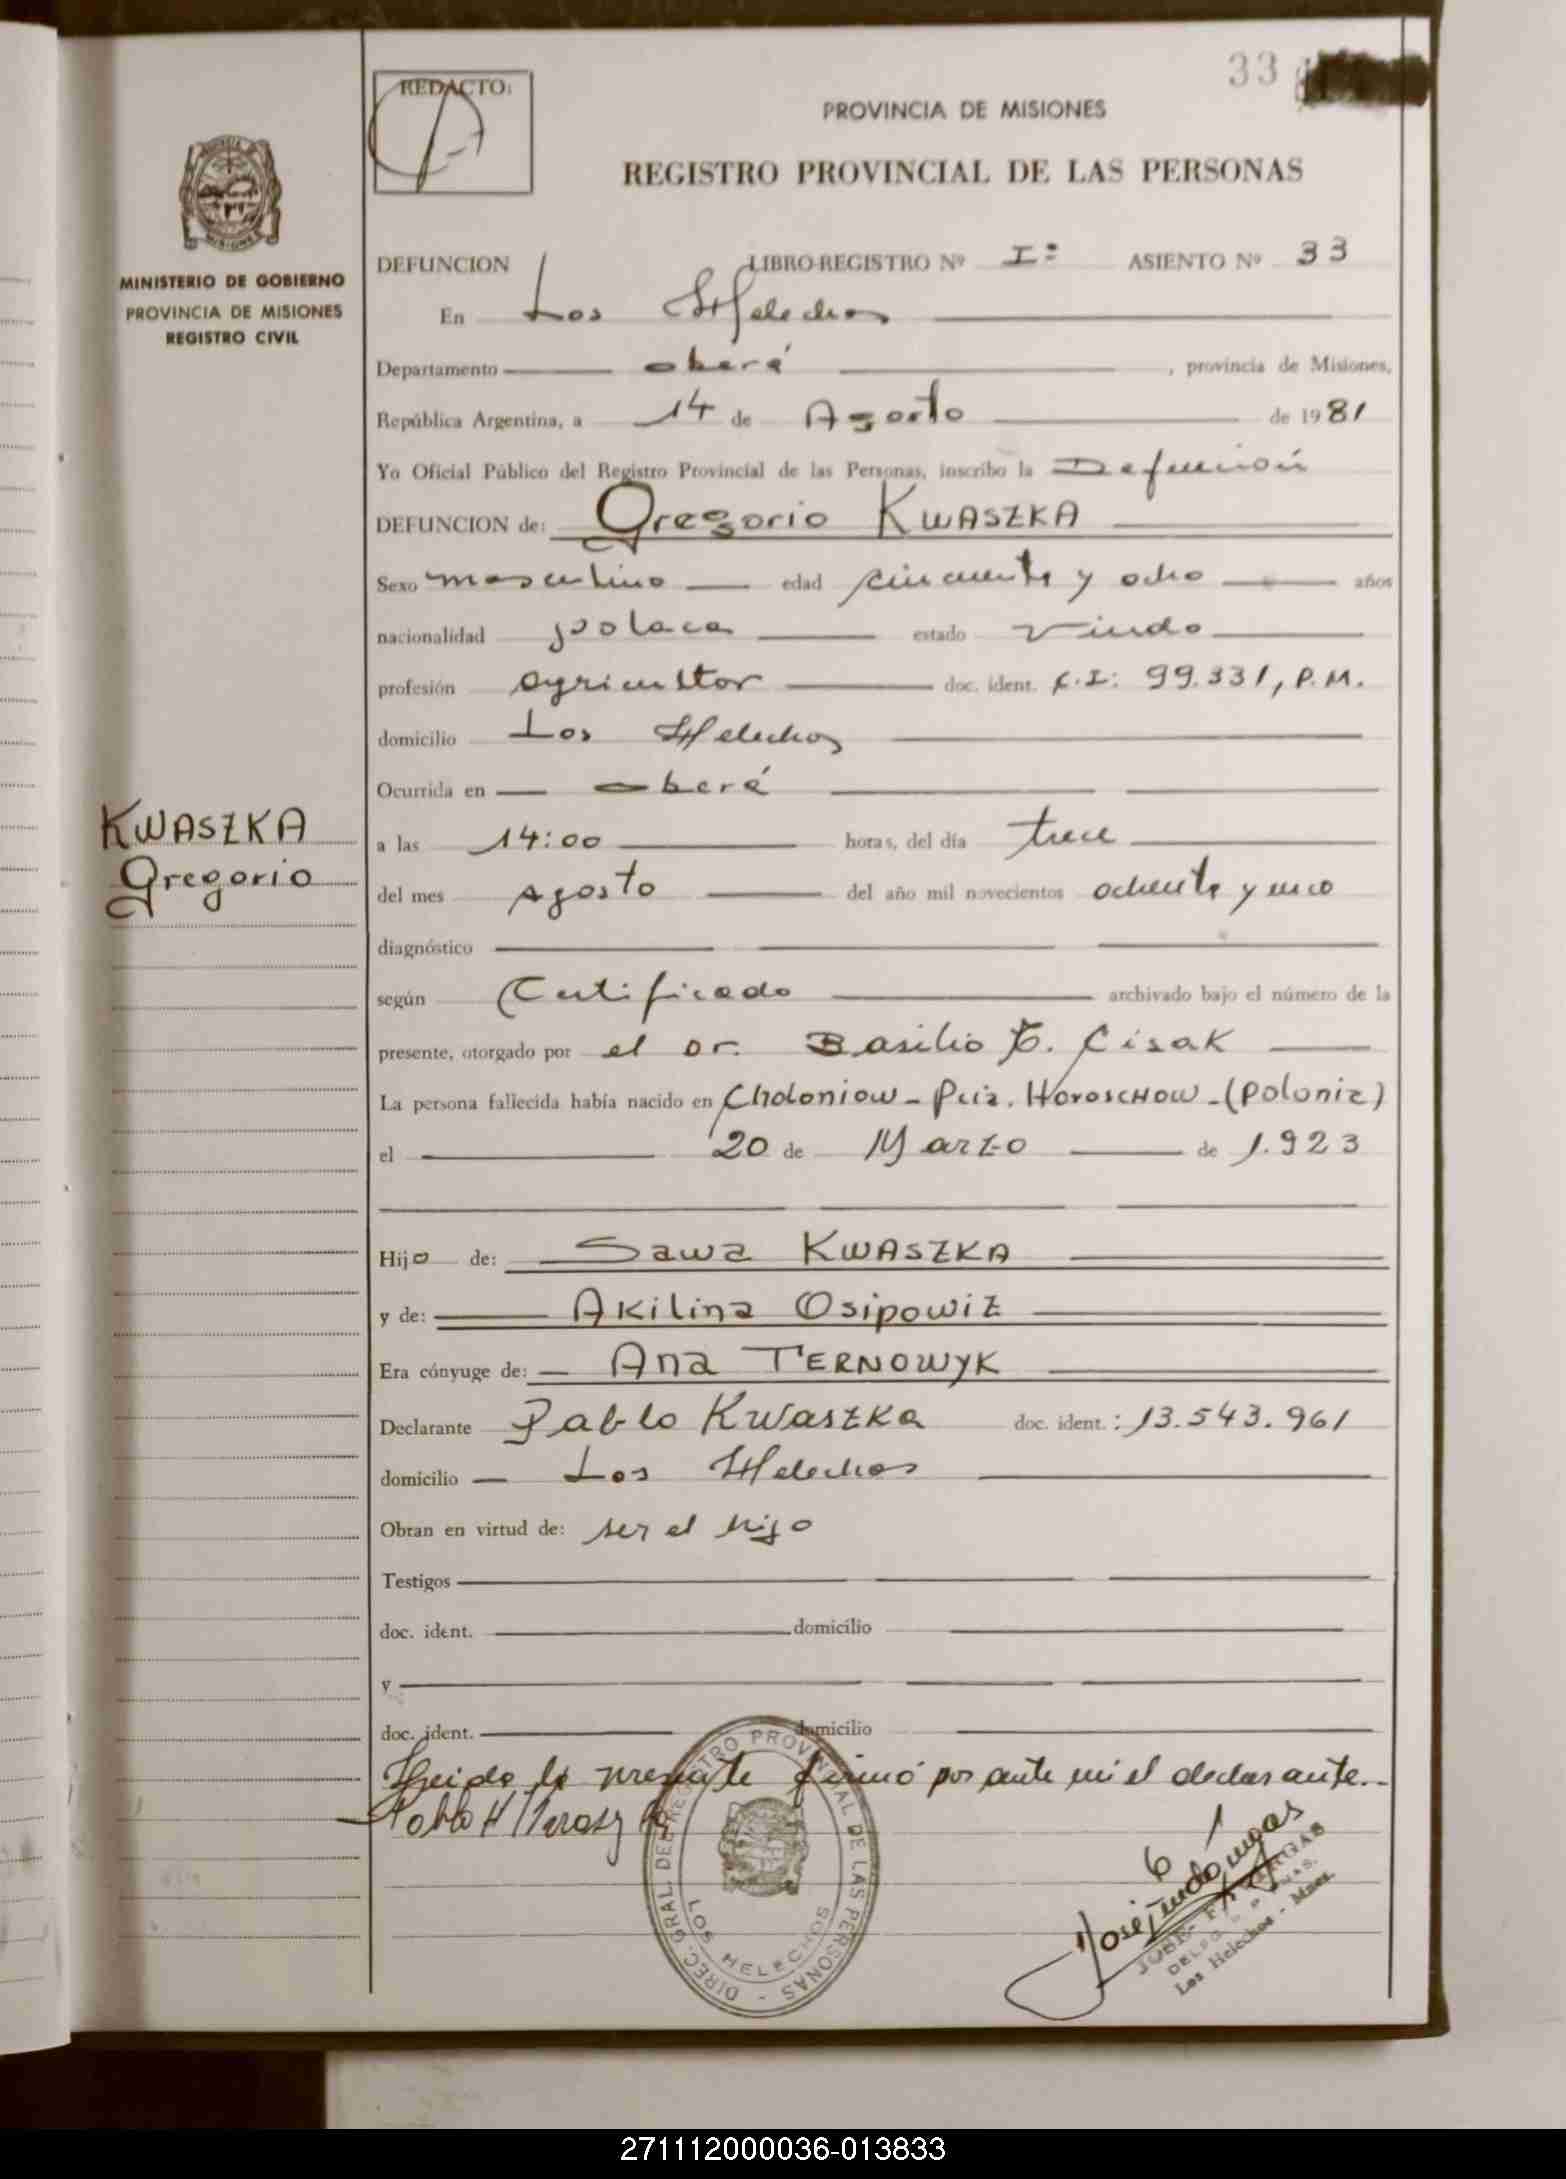 33
REDACTO:
PROVINCIA DE MISIONES
REGISTRO PROVINCIAL DE LAS PERSONAS
MINISTERIO DE GOBIERNO
PROVINCIA DE MISIONES
REGISTRO CIVIL
DEFUNCION LIBRO-REGISTRO Nº Iº ASIENTO Nº 33
En Los Helechos
Departamento oberá, provincia de Misiones,
República Argentina, a 14 de Agosto de 1981
Yo Oficial Público del Registro Provincial de las Personas, inscribo la Defunción
DEFUNCION de: Gregorio KWASZKA
Sexo masculino edad cincuenta y ocho años
nacionalidad polaca estado viudo
profesión agricultor doc. ident. C.I: 99.331, P.M.
domicilio Los Helechos
Ocurrida en oberá
KWASZKA
Gregorio
a las 14:00 horas, del día trece
del mes Agosto del año mil novecientos ochenta y uno
diagnóstico
según Certificado archivado bajo el número de la
presente, otorgado por el Dr. Basilio E. Cisak
La persona fallecida había nacido en Choloniow - Pcia. HOROSCHOW - (Polonia)
el 20 de Marzo de 1.923
Hijo de: Sawa KWASZKA
y de: Akilina Osipowiz
Era cónyuge de: Ana TERNOWYK
Declarante Pablo Kwaszka doc. ident.: 13.543.961
domicilio Los Helechos
Obran en virtud de: ser el hijo
Testigos
doc. ident. domicilio
y
doc. ident. domicilio
Leida la presente firmó por ante mi el declarante.-
DIREC. GRAL. DEL REGISTRO PROVINCIAL DE LAS PERSONAS -
LOS HELECHOS
Los Helechos - Mnes.
271112000036-013833